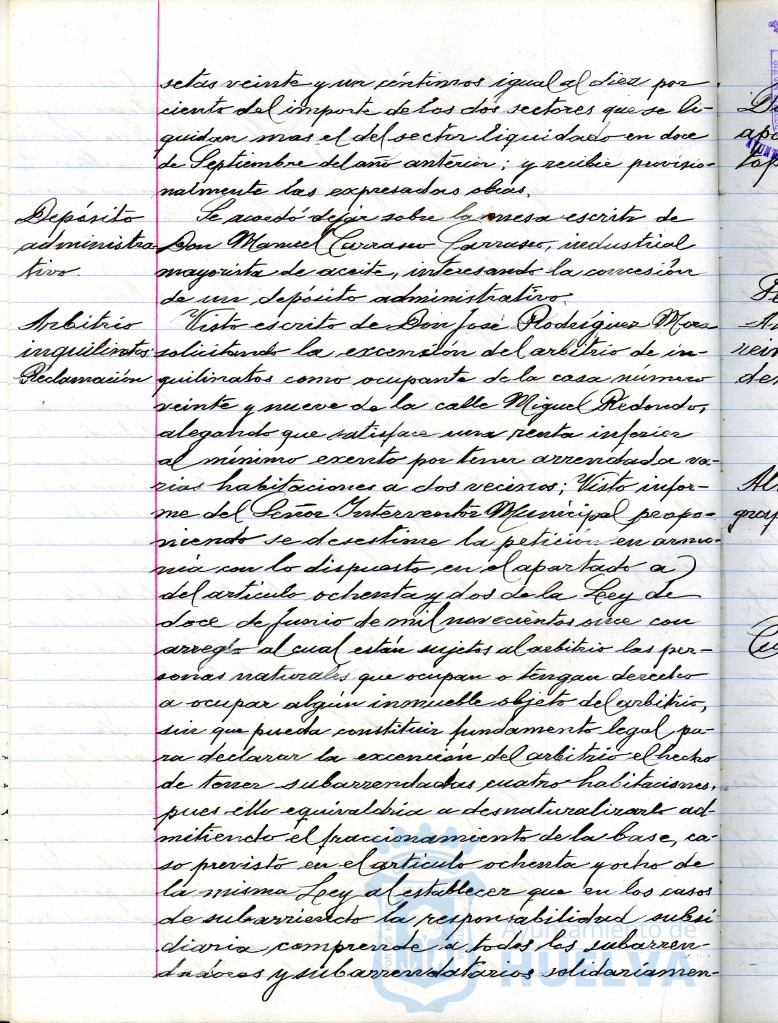 setas veinte y un céntimos igual al diez por
ciento del importe de los dos sectores que se li-
quidan mas el del sector liquidado en doce
de Septiembre del año anterior; y recibir provisio-
nalmente las expresadas obras.
Depósito
administra-
tivo.
Se acordó dejar sobre la mesa escrito de
Don Manuel Carrasco Carrasco, industrial
mayorista de aceite, interesando la concesión
de un depósito administrativo.
Arbitrio
inquilinatos
Reclamación
Visto escrito de Don José Rodríguez Mora
solicitando la excención del arbitrio de in-
quilinatos como ocupante de la casa número
veinte y nueve de la calle Miguel Redondo,
alegando que satisface una renta inferior
al mínimo exento por tener arrendada va-
rias habitaciones a dos vecinos; Visto infor-
me del Señor Interventor Municipal propo-
niendo se desestime la petición en armo-
nía con lo dispuesto en el apartado a)
del artículo ochenta y dos de la Ley de
doce de Junio de mil novecientos once con
arreglo al cual están sujetos al arbitrio las per-
sonas naturales que ocupan o tengan derecho
a ocupar algún inmueble objeto del arbitrio,
sin que pueda constituir fundamento legal pa-
ra declarar la excención del arbitrio el hecho
de tener subarrendadas cuatro habitaciones,
pues ello equivaldría a desnaturalizarlo ad-
mitiendo el fraccionamiento de la base, ca-
so previsto en el artículo ochenta y ocho de
la misma Ley al establecer que en los casos
de subarriendo la responsabilidad subsi-
diaria comprende a todos los subarren-
dadores y subarrendatarios solidariamen-
Ayuntamiento de
HUELVA